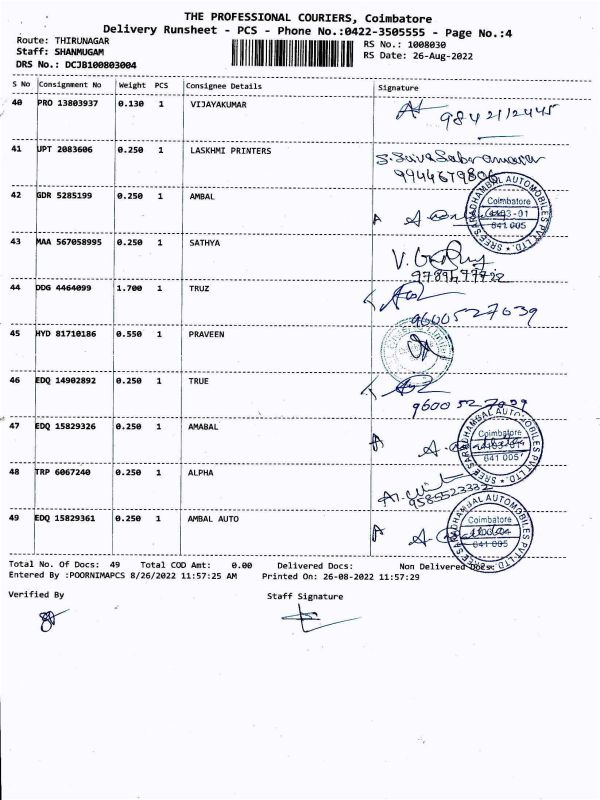 THE PROFESSIONAL COURIERS, Coimbatore
Delivery Runsheet - PCS - Phone No.:0422-3505555 - Page No.:4
Route: THIRUNAGAR
Staff: SHANMUGAM
DRS No.: DCJB100803004
RS No.: 1008030
RS Date: 26-Aug-2022
S No Consignment No Weight PCS Consignee Details Signature
40 PRO 13803937 0.130 1 VIJAYAKUMAR 9842112445
41 UPT 2083606 0.250 1 LASKHMI PRINTERS
9944679806
42 GDR 5285199 0.250 1 AMBAL
SREE SARADHAMBAL AUTOMOBILES PVT LTD.
Coimbatore
641 005
43 MAA 567058995 0.250 1 SATHYA
44 DDG 4464099 1.700 1 TRUZ
9600527039
45 HYD 81710186 0.550 1 PRAVEEN
46 EDQ 14902892 0.250 1 TRUE
9600527039
47 EDQ 15829326 0.250 1 AMABAL
SREE SARADHAMBAL AUTOMOBILES PVT LTD.
Coimbatore
641 005
48 TRP 6067240 0.250 1 ALPHA
9585523332
49 EDQ 15829361 0.250 1 AMBAL AUTO
SREE SARADHAMBAL AUTOMOBILES PVT LTD.
Coimbatore
641 005
Total No. Of Docs: 49 Total COD Amt: 0.00 Delivered Docs: Non Delivered Docs:
Entered By :POORNIMAPCS 8/26/2022 11:57:25 AM Printed On: 26-08-2022 11:57:29
Verified By Staff Signature